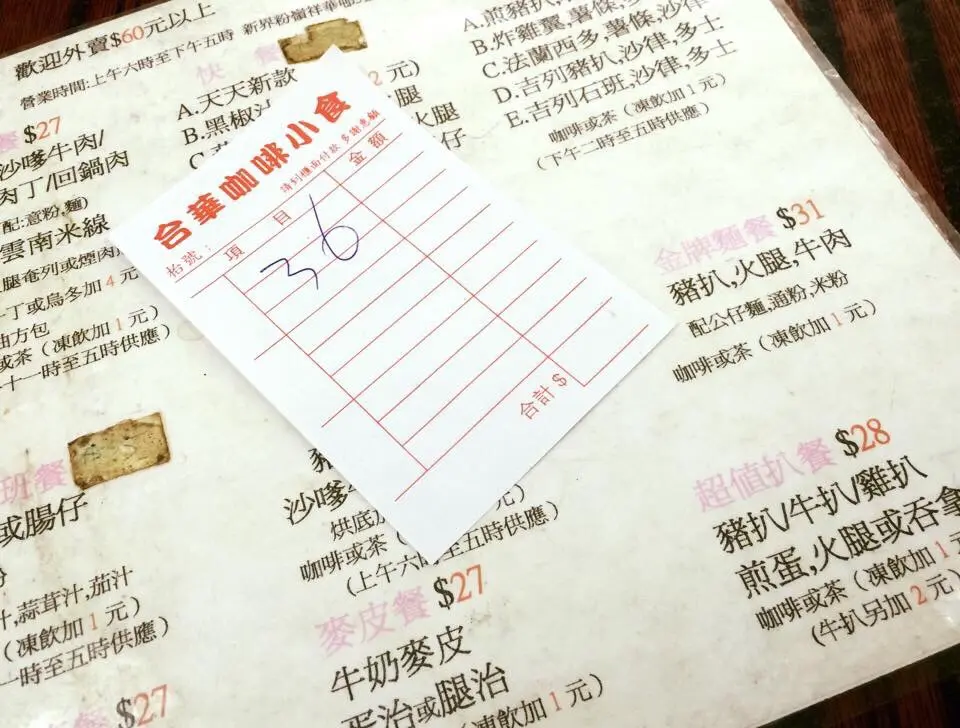 歡迎外賣$60元以上
營業時間:上午六時至下午五時 新界粉嶺祥華
快 餐
A.天天新款
B.黑椒
2 元)
腿
火腿
仔
餐 $27
沙嗲牛肉/
肉丁/回鍋肉
配:意粉,麵)
雲南米線
腿奄列或煙肉
丁或烏冬加 4 元
油方包
或茶 (凍飲加 1 元)
十一時至五時供應)
A.煎豬扒,
B.炸雞翼,薯條,多
C.法蘭西多,薯條,沙律
D.吉列豬扒,沙律,多士
E.吉列石班,沙律,多士
咖啡或茶 (凍飲加 1 元)
(下午二時至五時供應)
合華咖啡小食
請到櫃面付款 多謝惠顧
枱號:
項 目
金 額
36
合計 $
金牌麵餐 $31
豬扒,火腿,牛肉
配公仔麵,通粉,米粉
咖啡或茶 (凍飲加 1 元)
超值扒餐 $28
豬扒/牛扒/雞扒
煎蛋,火腿或吞拿
咖啡或茶 (凍飲加 1 元
(牛扒另加 2 元)
班餐
或腸仔
汁,蒜茸汁,茄汁
(凍飲加 1 元)
一時至五時供應)
餐 $27
沙嗲
烘底加
元)
咖啡或茶
(上午六
至五時供應)
麥皮餐 $27
牛奶麥皮
蛋治或腿治
(凍飲加 1 元)